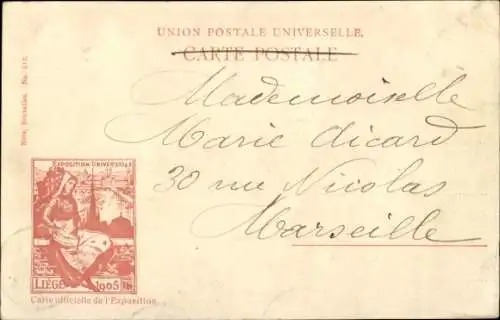 UNION POSTALE UNIVERSELLE.
CARTE POSTALE
Mademoiselle
Marie Aicard
30 rue Nicolas
Marseille
Nels, Bruxelles. No. 217.
EXPOSITION UNIVERSELLE
LIÈGE 1905
Carte officielle de l'Exposition